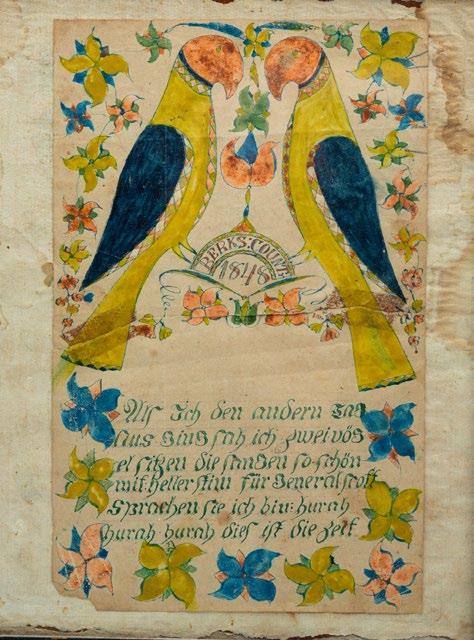 BERKS: COUNT
1848
Als Ich den andern Tag
aus ging sah ich zwei vög
el sitzen die sangen so schön
mit heller stim für General scott
Sprachen sie ich bin: hurah
hurah hurah dies ist die Zeit